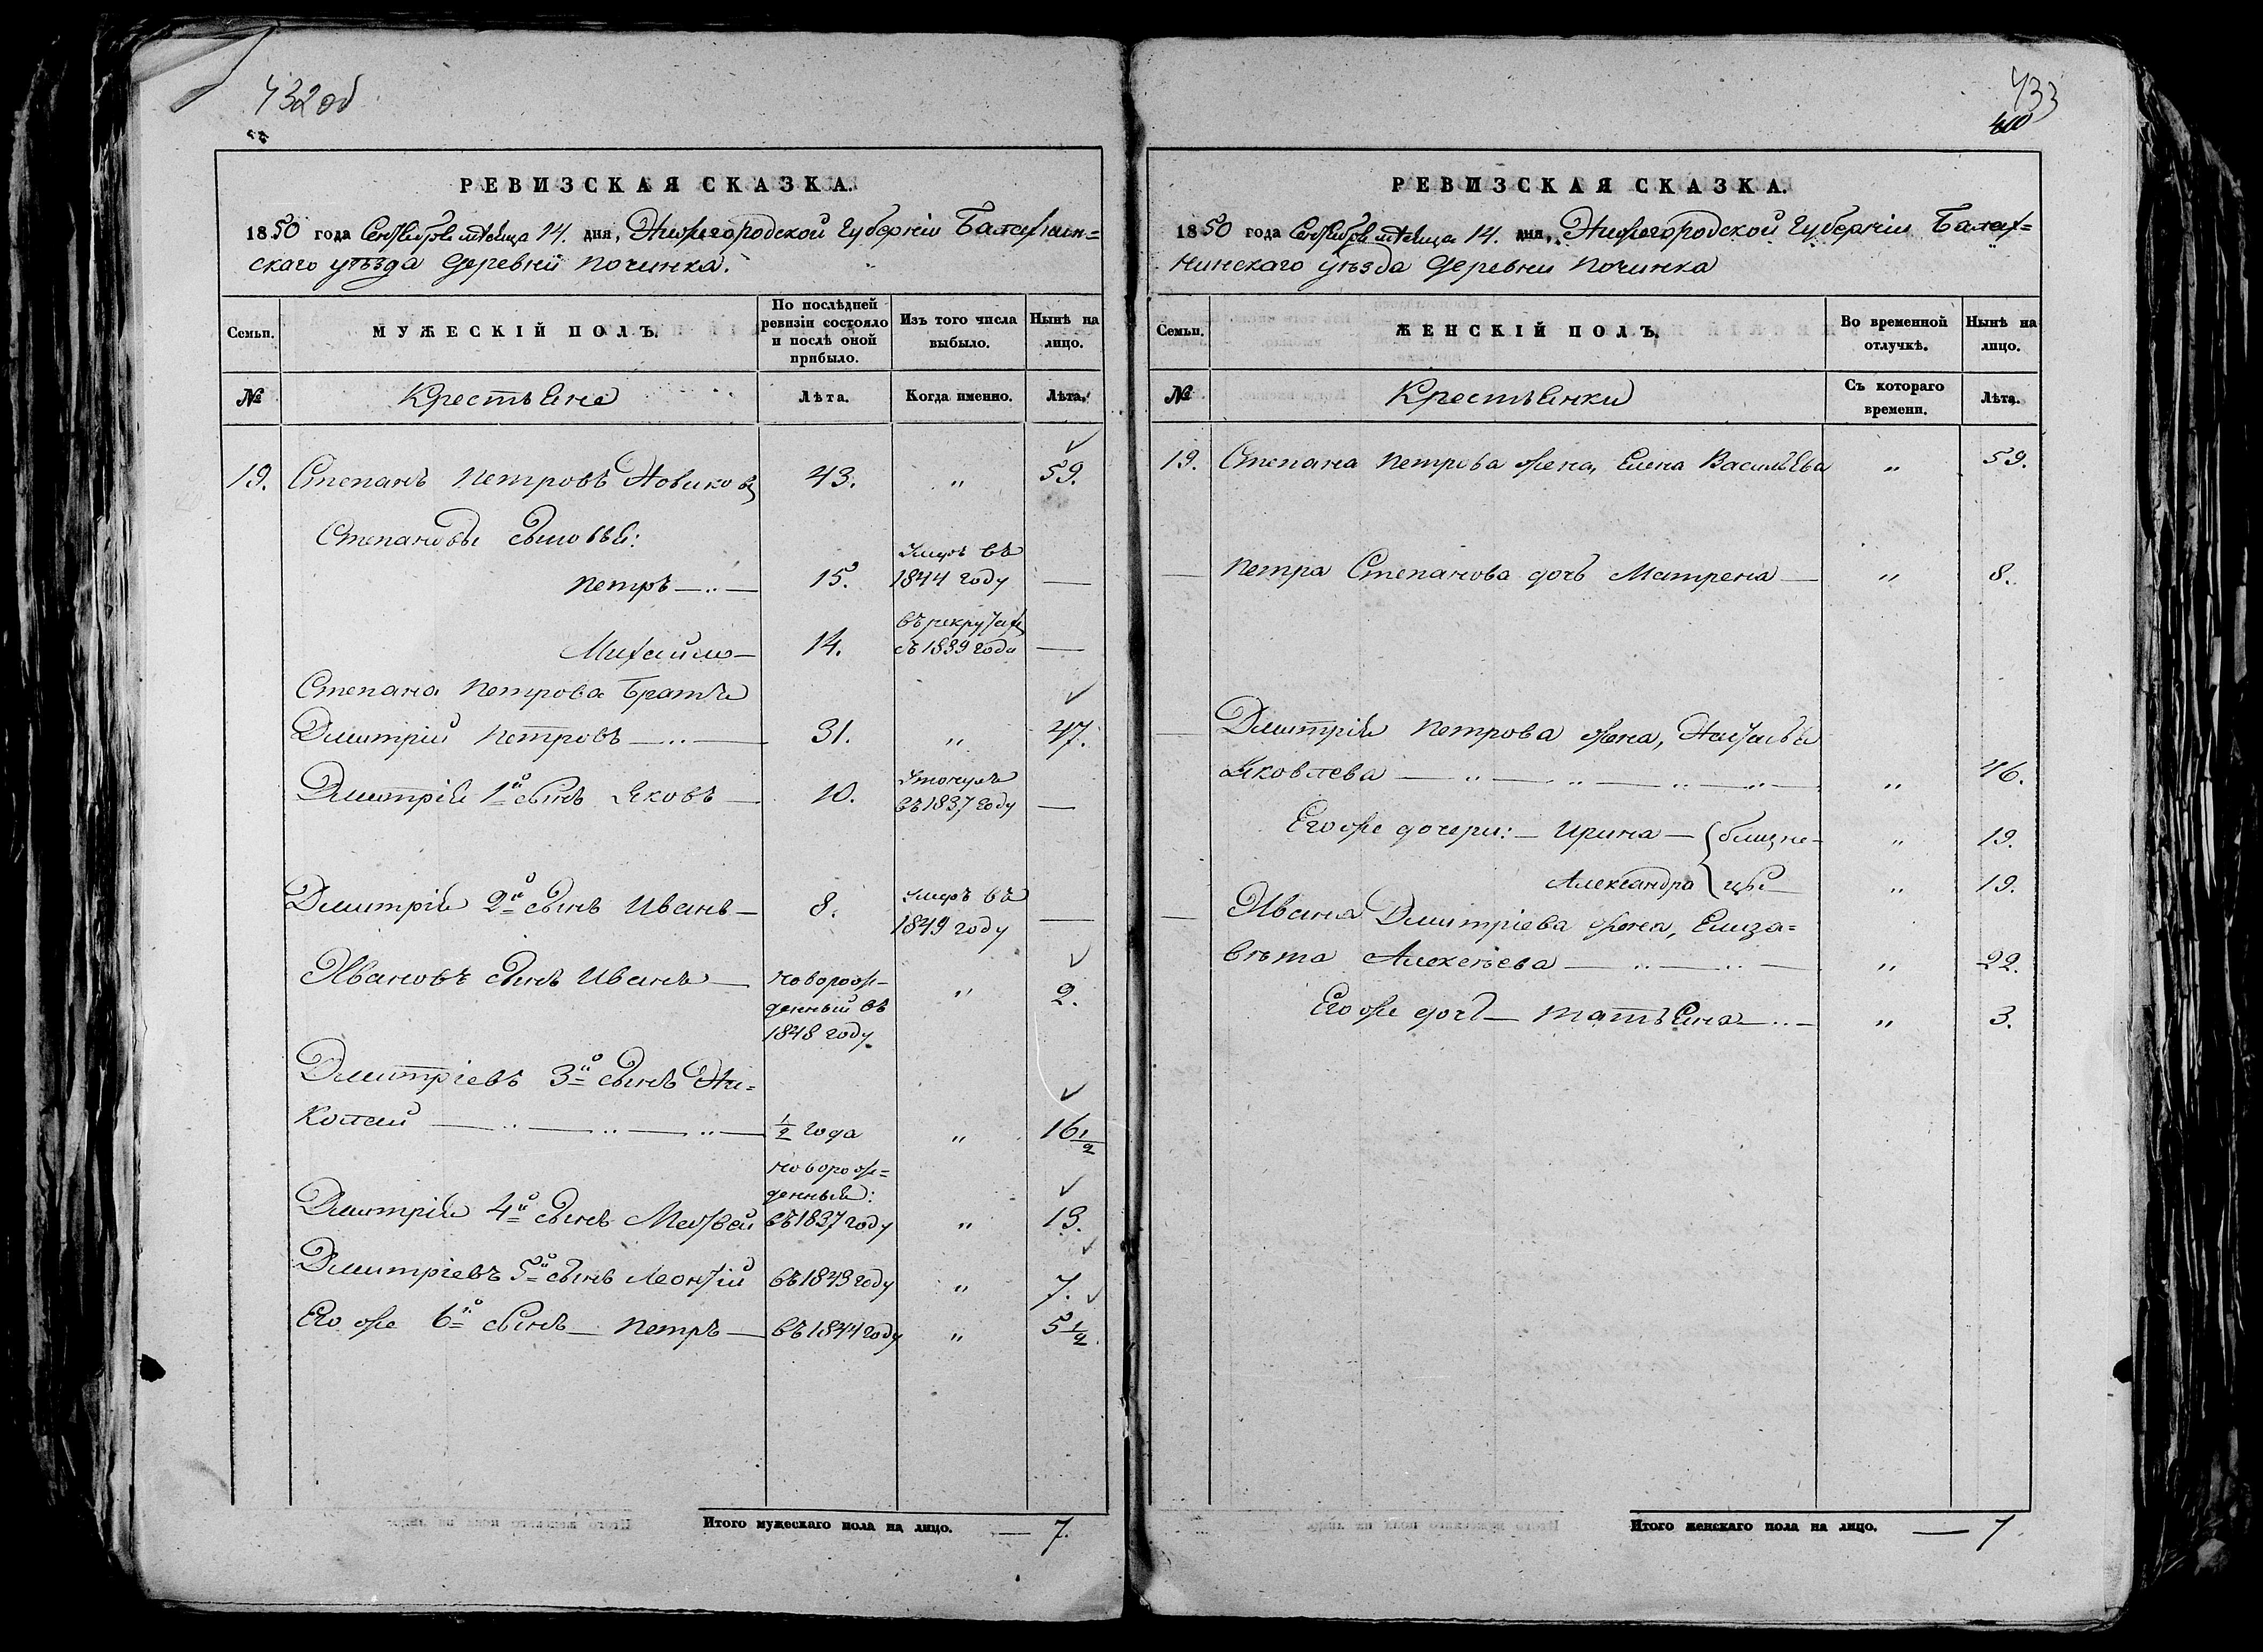 432 об
РЕВИЗСКАЯ СКАЗКА.
1850 года Сентября мѣсяца 14. дня, Нижегородской Губерніи Балахнин=
скаго уѣзда деревни Починка.
Семьи.
МУЖЕСКІЙ ПОЛЪ.
По послѣдней ревизіи состояло и послѣ оной прибыло.
Изъ того числа выбыло.
Нынѣ на лицо.
№
Крестьяне
Лѣта.
Когда именно.
Лѣта.
19. Степанъ Петровъ Новиковъ 43. „ 59.
Степановы сыновья:
Умеръ въ
Петръ 15. 1844 году —
въ рекрутахъ
Михайло 14. съ 1839 года —
Степана Петрова братья
Дмитрій Петровъ 31. „ 47.
Утонулъ
Дмитрія 1й сынъ Яковъ 10. въ 1837 году —
Умеръ въ
Дмитрія 2й сынъ Иванъ 8. 1849 году —
Ивановъ сынъ Иванъ — новорож-
денный въ „ 2.
1848 году
Дмитріевъ 3й сынъ Ни=
колай ½ года „ 16½
новорож=
денный:
Дмитрія 4й сынъ Матвей въ 1837 году „ 13.
Дмитріевъ 5й сынъ Леонтій въ 1843 году „ 7.
Его же 6й сынъ — Петръ — въ 1844 году „ 5½
Итого мужескаго пола на лицо. — 7.
433
400
РЕВИЗСКАЯ СКАЗКА.
1850 года Сентября мѣсяца 14. дня, Нижегородской Губерніи Балах=
нинскаго уѣзда деревни Починка
Семьи.
ЖЕНСКІЙ ПОЛЪ.
Во временной отлучкѣ.
Нынѣ на лицо.
№
Крестьянки
Съ котораго времени.
Лѣта.
19. Степана Петрова жена, Елена Васильева „ 59.
— Петра Степанова дочь Матрена — „ 8.
— Дмитрія Петрова жена, Наталья
Яковлева „ 46.
Его же дочери: — Ирина — { близне- „ 19.
Александра { цы — „ 19.
— Ивана Дмитріева жена, Елиза=
вѣта Алексѣева „ 22.
Его же дочь — Татьяна „ 3.
Итого женскаго пола на лицо. — 7